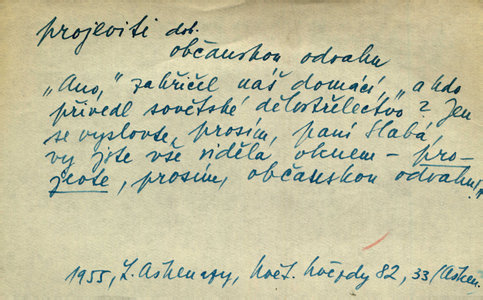 projeviti dok.
občanskou odvahu
„Ano,“ zakřičel náš domácí, „a kdo
přivedl sovětské dělostřelectvo? Jen
se vyslovte, prosím, paní Slabá,
vy jste vše viděla oknem – pro-
jevte, prosím, občanskou odvahu!“
1955, L. Askenazy, Květ. hvězdy 82, 33/Asken.